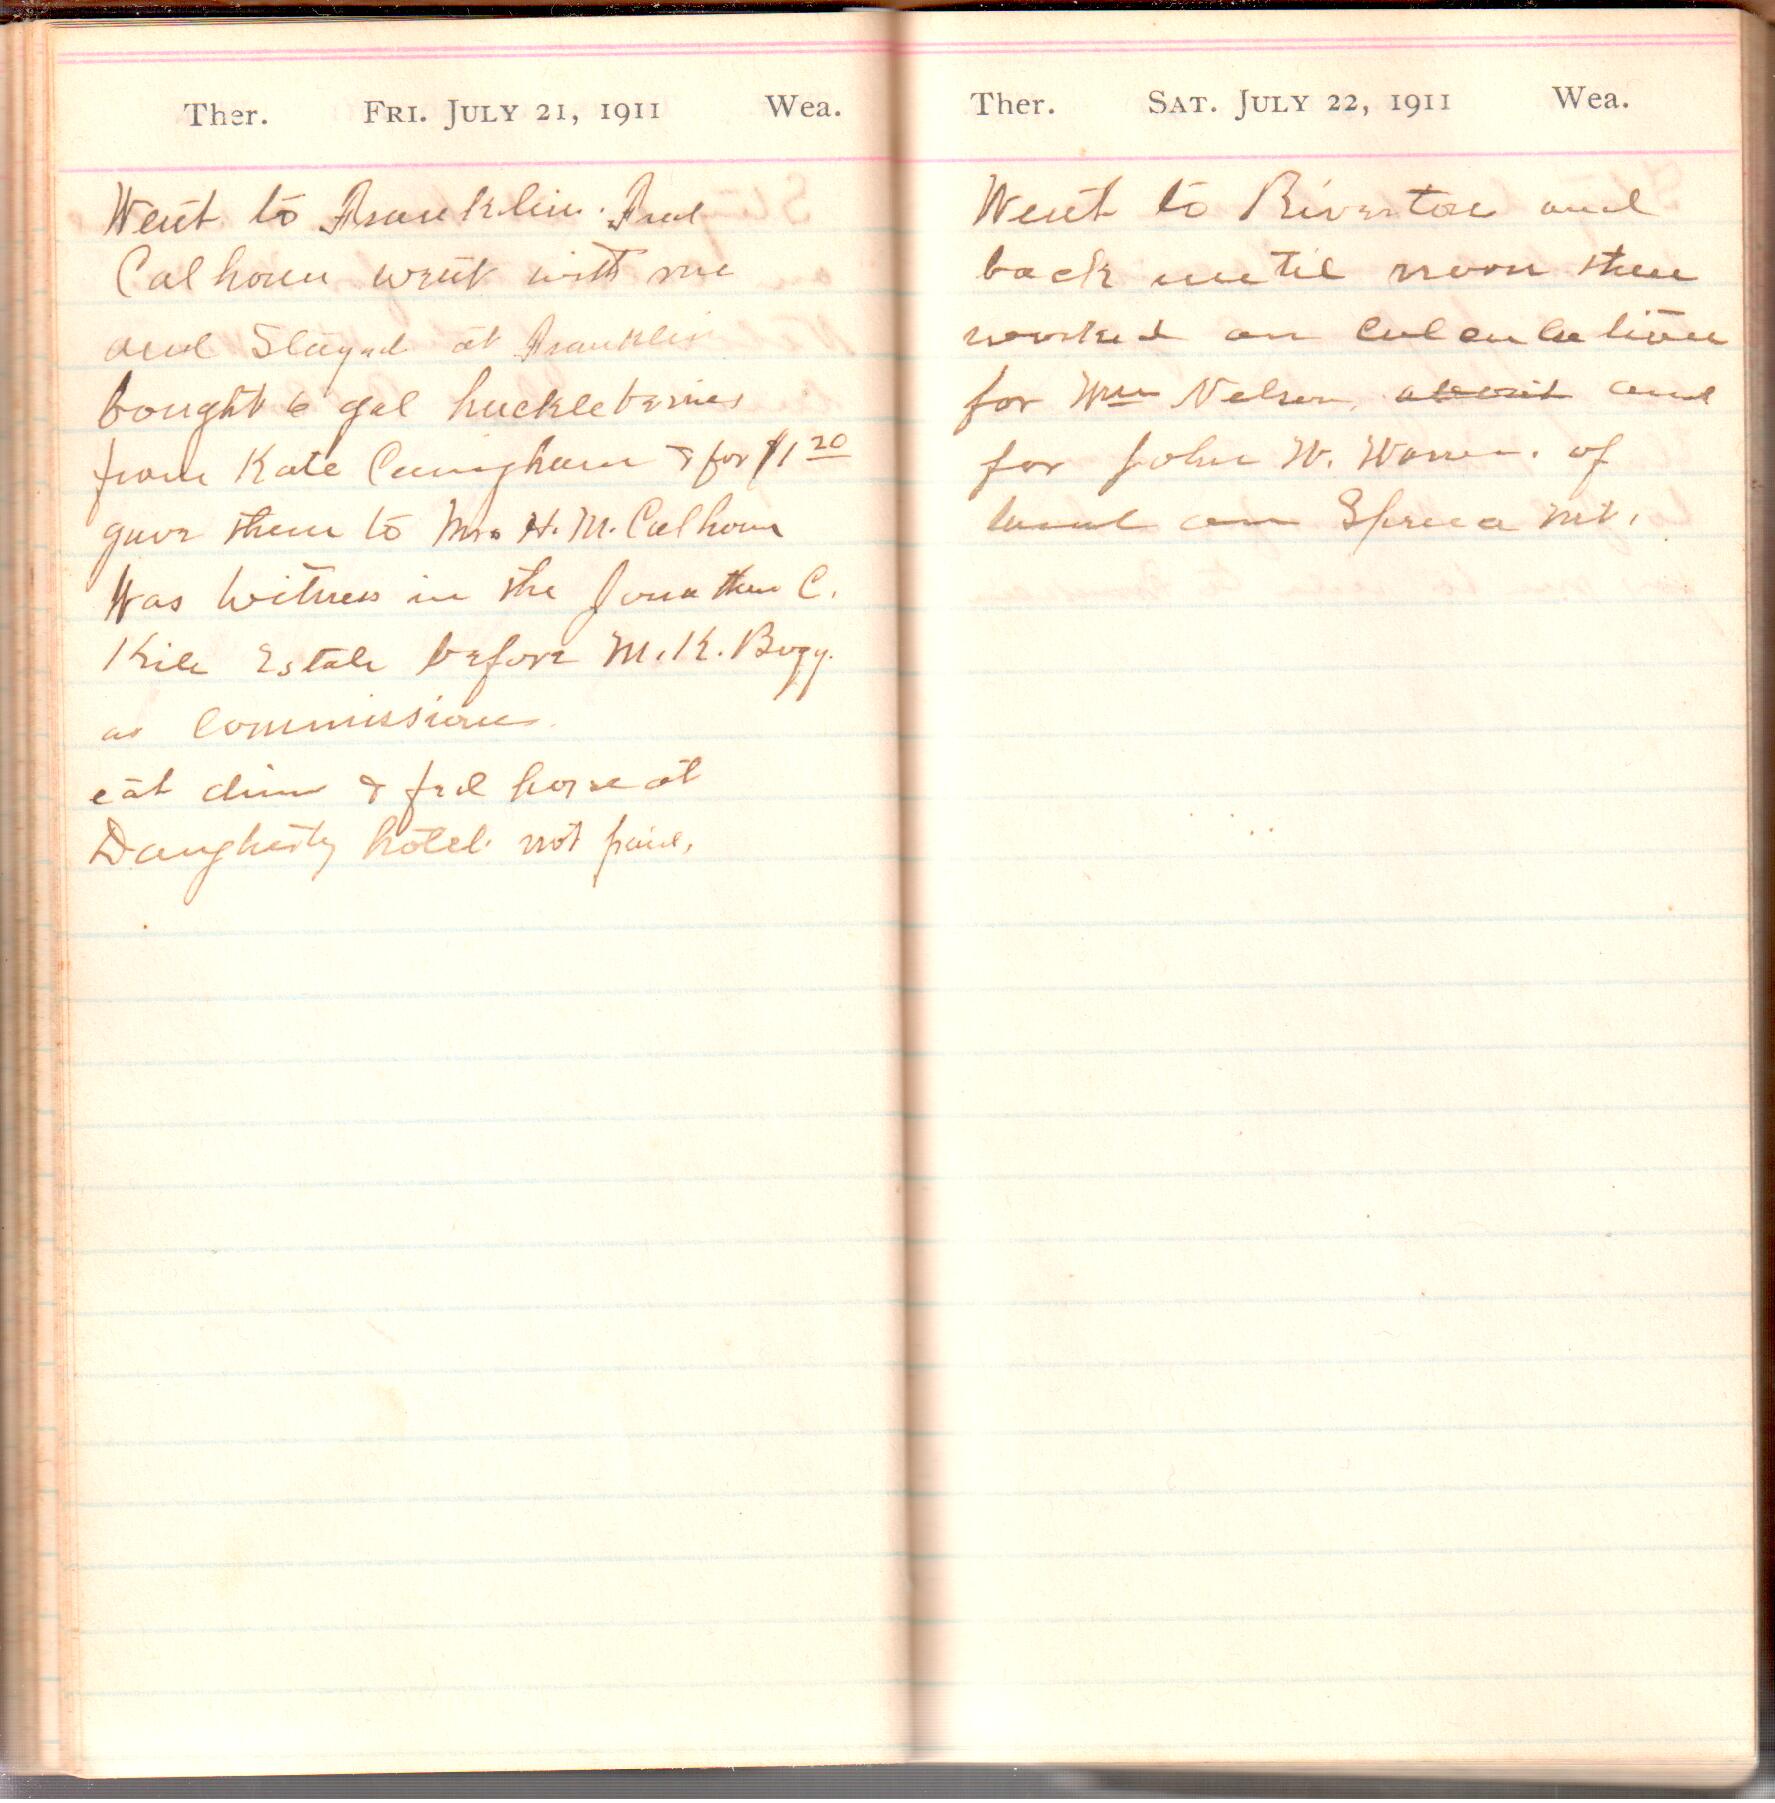 Ther. FRI. JULY 21, 1911 Wea.
Went to Franklin. Fred
Calhoun went with me
and Stayed at Franklin
bought 6 gal huckleberries
from Kate Cuningham & for $1 20
gave them to Mrs H. M. Calhoun
Was witness in the Jonathan C.
Kile Estate before M. K. Bogg.
as Commissione
eat dinn & fed horse at
Daugherty hotel. not paid.
Ther. SAT. JULY 22, 1911 Wea.
Went to Riverton and
back until noon then
worked on Calculation
for Wm Nelson, about and
for John W. Warner. of
land on Spruce Mt.